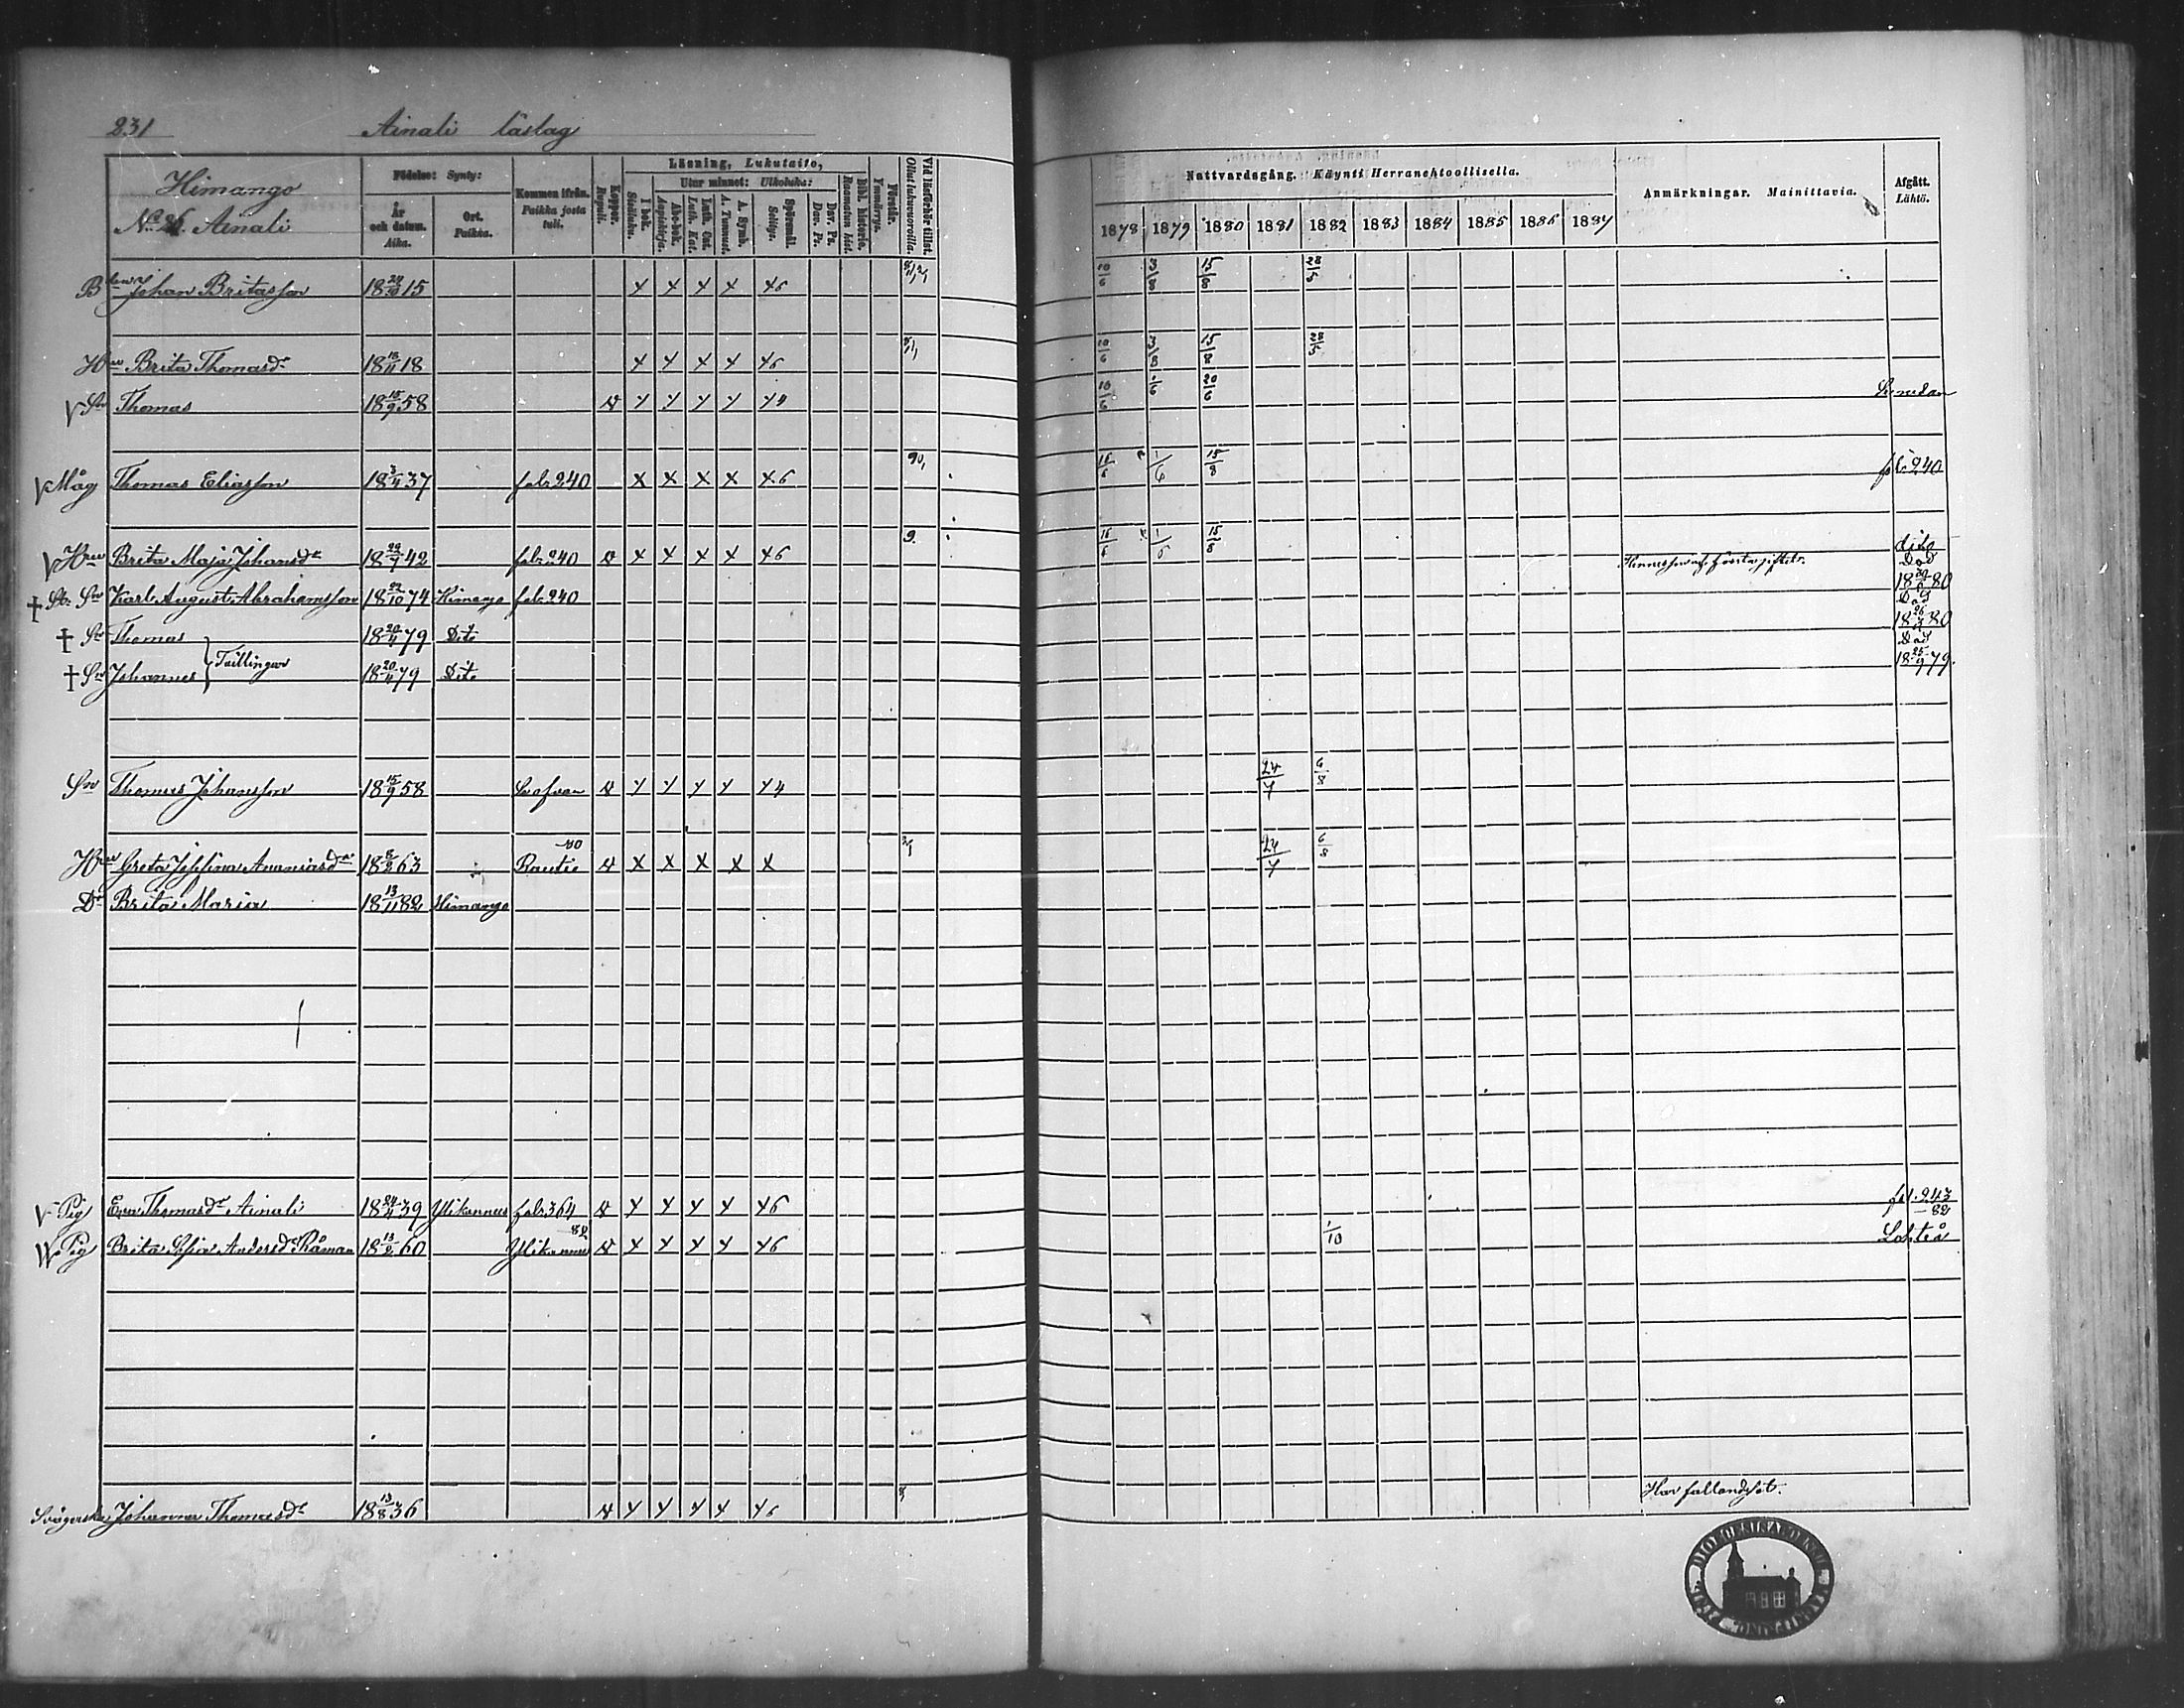 231 Ainali läslag
Himango
No 26. Ainali
Födelse: Synty:
År och datum. Aika.
Ort. Paikka.
Kommen ifrån. Paikka josta tuli.
Koppor. Rupuli.
Läsning, Lukutaito,
I bok. Sisäluku.
Utur minnet: Ulkoluku:
Abc-bok. Aapiskirja.
Luth. Cat. Luth. Kat.
A. Symb. A. Tunnust.
Spörsmål. Selitys.
Dav. Ps. Dav. Ps.
Bibl. historie. Raamatun hist.
Förstår. Ymmärrys.
Vid läsförhör tillst. Ollut lukuvuoroilla.
Nattvardsgång. Käynti Herranehtoollisella.
1878 1879 1880 1881 1882 1883 1884 1885 1886 1887
Anmärkningar. Mainittavia.
Afgått. Lähtö.
Johan Britasson 18 24/10 15 x x x x x6 10/6 3/8 15/8 28/5
Hu Brita Thomasdr 18 18/11 18 x x x x x6 10/6 3/8 15/8 28/5
V Sn Thomas 18 15/9 58 v x x x x x4 10/6 1/6 20/6 Se nedan
V Måg Thomas Eliasson 18 3/4 37 fol. 240 x x x x x6 16/6 1/6 15/8 fol. 240
V Hu Brita Maja Johansdr 18 29/7 42 fol. 240 v x x x x x6 16/6 1/6 15/8 dito
† St. Sn Karl August Abrahamsson 18 22/10 74 Himango fol. 240 Hennes son af första giftet. Död 1880
† Sn Thomas 18 20/4 79 Dito Död 18 26/4 80
† Sn Johannes } Tvillingar 18 20/4 79 Dito Död 18 25/9 79.
Sn Thomas Johansson 18 15/9 58 Se ofvan v x x x x x4 24/7 6/8
Hu Greta Josefina Ananiasdr 18 8/2 63 Rautio 80 v x x x x x 24/7 6/8
Dr Brita Maria 18 13/11 82 Himango
V Pig Eva Thomasdr Ainali 18 24/4 39 Ylikannus fol. 364 v x x x x x6 fol. 243
W Pig Brita Sofia Andersdr Thåman 18 13/2 60 Ylikannus 82 v x x x x x6 1/10 82 Lohteå
Svägerska Johanna Thomasdr 18 13/8 36 v x x x x x6 Har fallandesot.